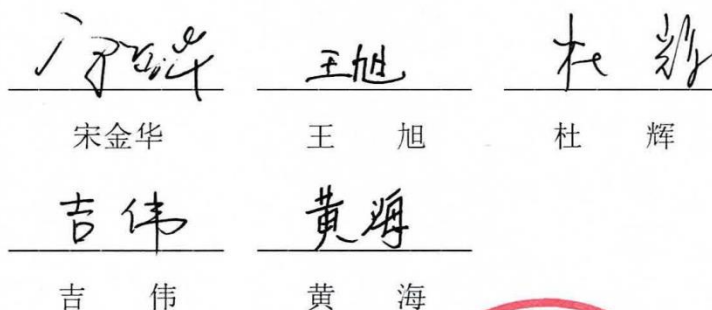 宋金华 王旭 杜辉
宋金华 王 旭 杜 辉
吉伟 黄海
吉 伟 黄 海